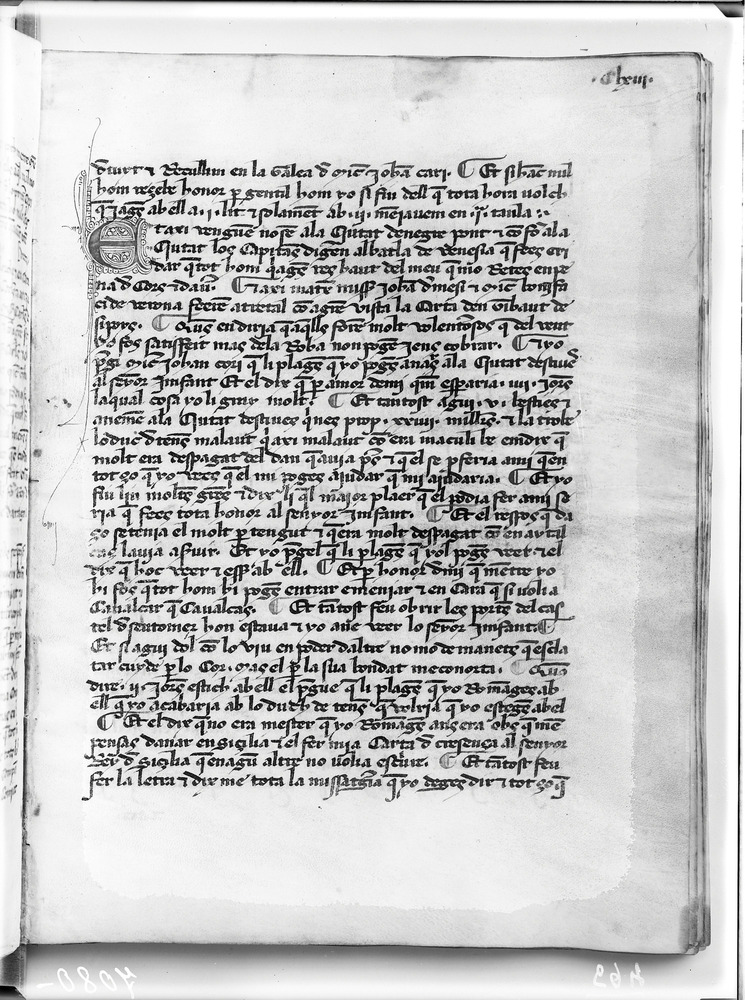 · Clxiii ·
diuit ⁊ Recullim en la Galea d mic̄ johan cari. ¶ Et sibac mil
hom reęebe honor p̱ gentil hom yo si fiu dell q̄ tota hora uolch
q̄ jagęs ab ell a .i. lit ⁊ solament ab .ii. meniauem en .i.ᵃ taula :·
E taxi vengue nosne ala Ciutat de negre pont ⁊ cō fo ala
Ciutat loes Capitaes digen al batla de Venesia q̄ feęs cri
dar q̄ tot hom q̄ ages res haut del meu q̄ mo Retes en pe
na d Cors ⁊ dau. ¶ Et axi mateix miss̄ johā d mesi ⁊ mic̄ bonifa
ci de uerona feeren atretal cō agren vista la Carta den tibaut de
sipoys. ¶ Que en diria q̄ aq̄lls foren molt volentosos q̄ del rent
yo fos satisfeit mas dela Roba non pogē jens cobrar. ¶ E yo
p̱gui mic̄ johan cori q̄ li plagęs q̄ yo pogęs anar ala Ciutat destiues
al seyor Infant Et el dix q̄ p̱ amor demi q̄m esp̱aria .iiii. jorns
laqual cosa yo li grai molt. ¶ Et tantost agui .v. bestięs ⁊
anemē ala Ciutat destiues q̄ nes prop .xxiiii. milles. ⁊ la trobe
lo duc d tenes malaut q̄ axi malaut cō era macuili be em dix q̄
molt era despagat del dan q̄ auia p̱s ⁊ q̄ el se p̱feria a mi q̄ en
tot ço q̄ yo vees q̄ el mi pogęs ajudar q̄ mi ajudaria. ¶ Et yo
fiu lin moltes gręs ⁊ dix li q̄l maior plaer q̄ el podia fer a mi se
ria q̄ feęs tota honor al senyor ⁊ infant. ¶ Et el respos q̄ da
ço se tenia el molt p̱ tengut ⁊ q̄ era molt despagat cō en aytal
cas lauia a seruir. Et yo p̱guel q̄ li plagęs q̄ yol pogęs veer. ⁊ el
dix q̄ hoc veer ⁊ ess̄ ab ell. ¶ Et p̱ honor d mi q̄ mentre yo
hi fos q̄ tot hom hi pogęs entrar e meniar ⁊ en Cara q̄ si uolia
Caualcar q̄ Caualcas. ¶ Et tātost feu obrir les portes del cas
tell d sentomer hon estaua ⁊ yo ane veer lo seyor Infant ¶
Et si agui dol cō lo viu en poder daltre no mo demanets q̄ escla
tar cuyde p̱ lo Cor. Mas el p̱ la sua bondat me conorta. ¶ Que us
dire .ii. jorns estich ab ell el p̱gue q̄ li plagęs q̄ yo Romangęs ab
ell q̄ yo acabaria ab lo duch de tenes q̄ volria q̄ yo estegęs ab el
¶ Et el dix q̄ no era mester q̄ yo Romangęs ans era obs q̄ me
pensas danar en Sicilia ⁊ el fer mia Carta d creença al senyor
Rey d Sicilia q̄ en agun altre no uolia escriure. ¶ Et tātost feu
fer la letra ⁊ dix me tota la missatgeria q̄ yo degęs dir ⁊ tot ço q̄